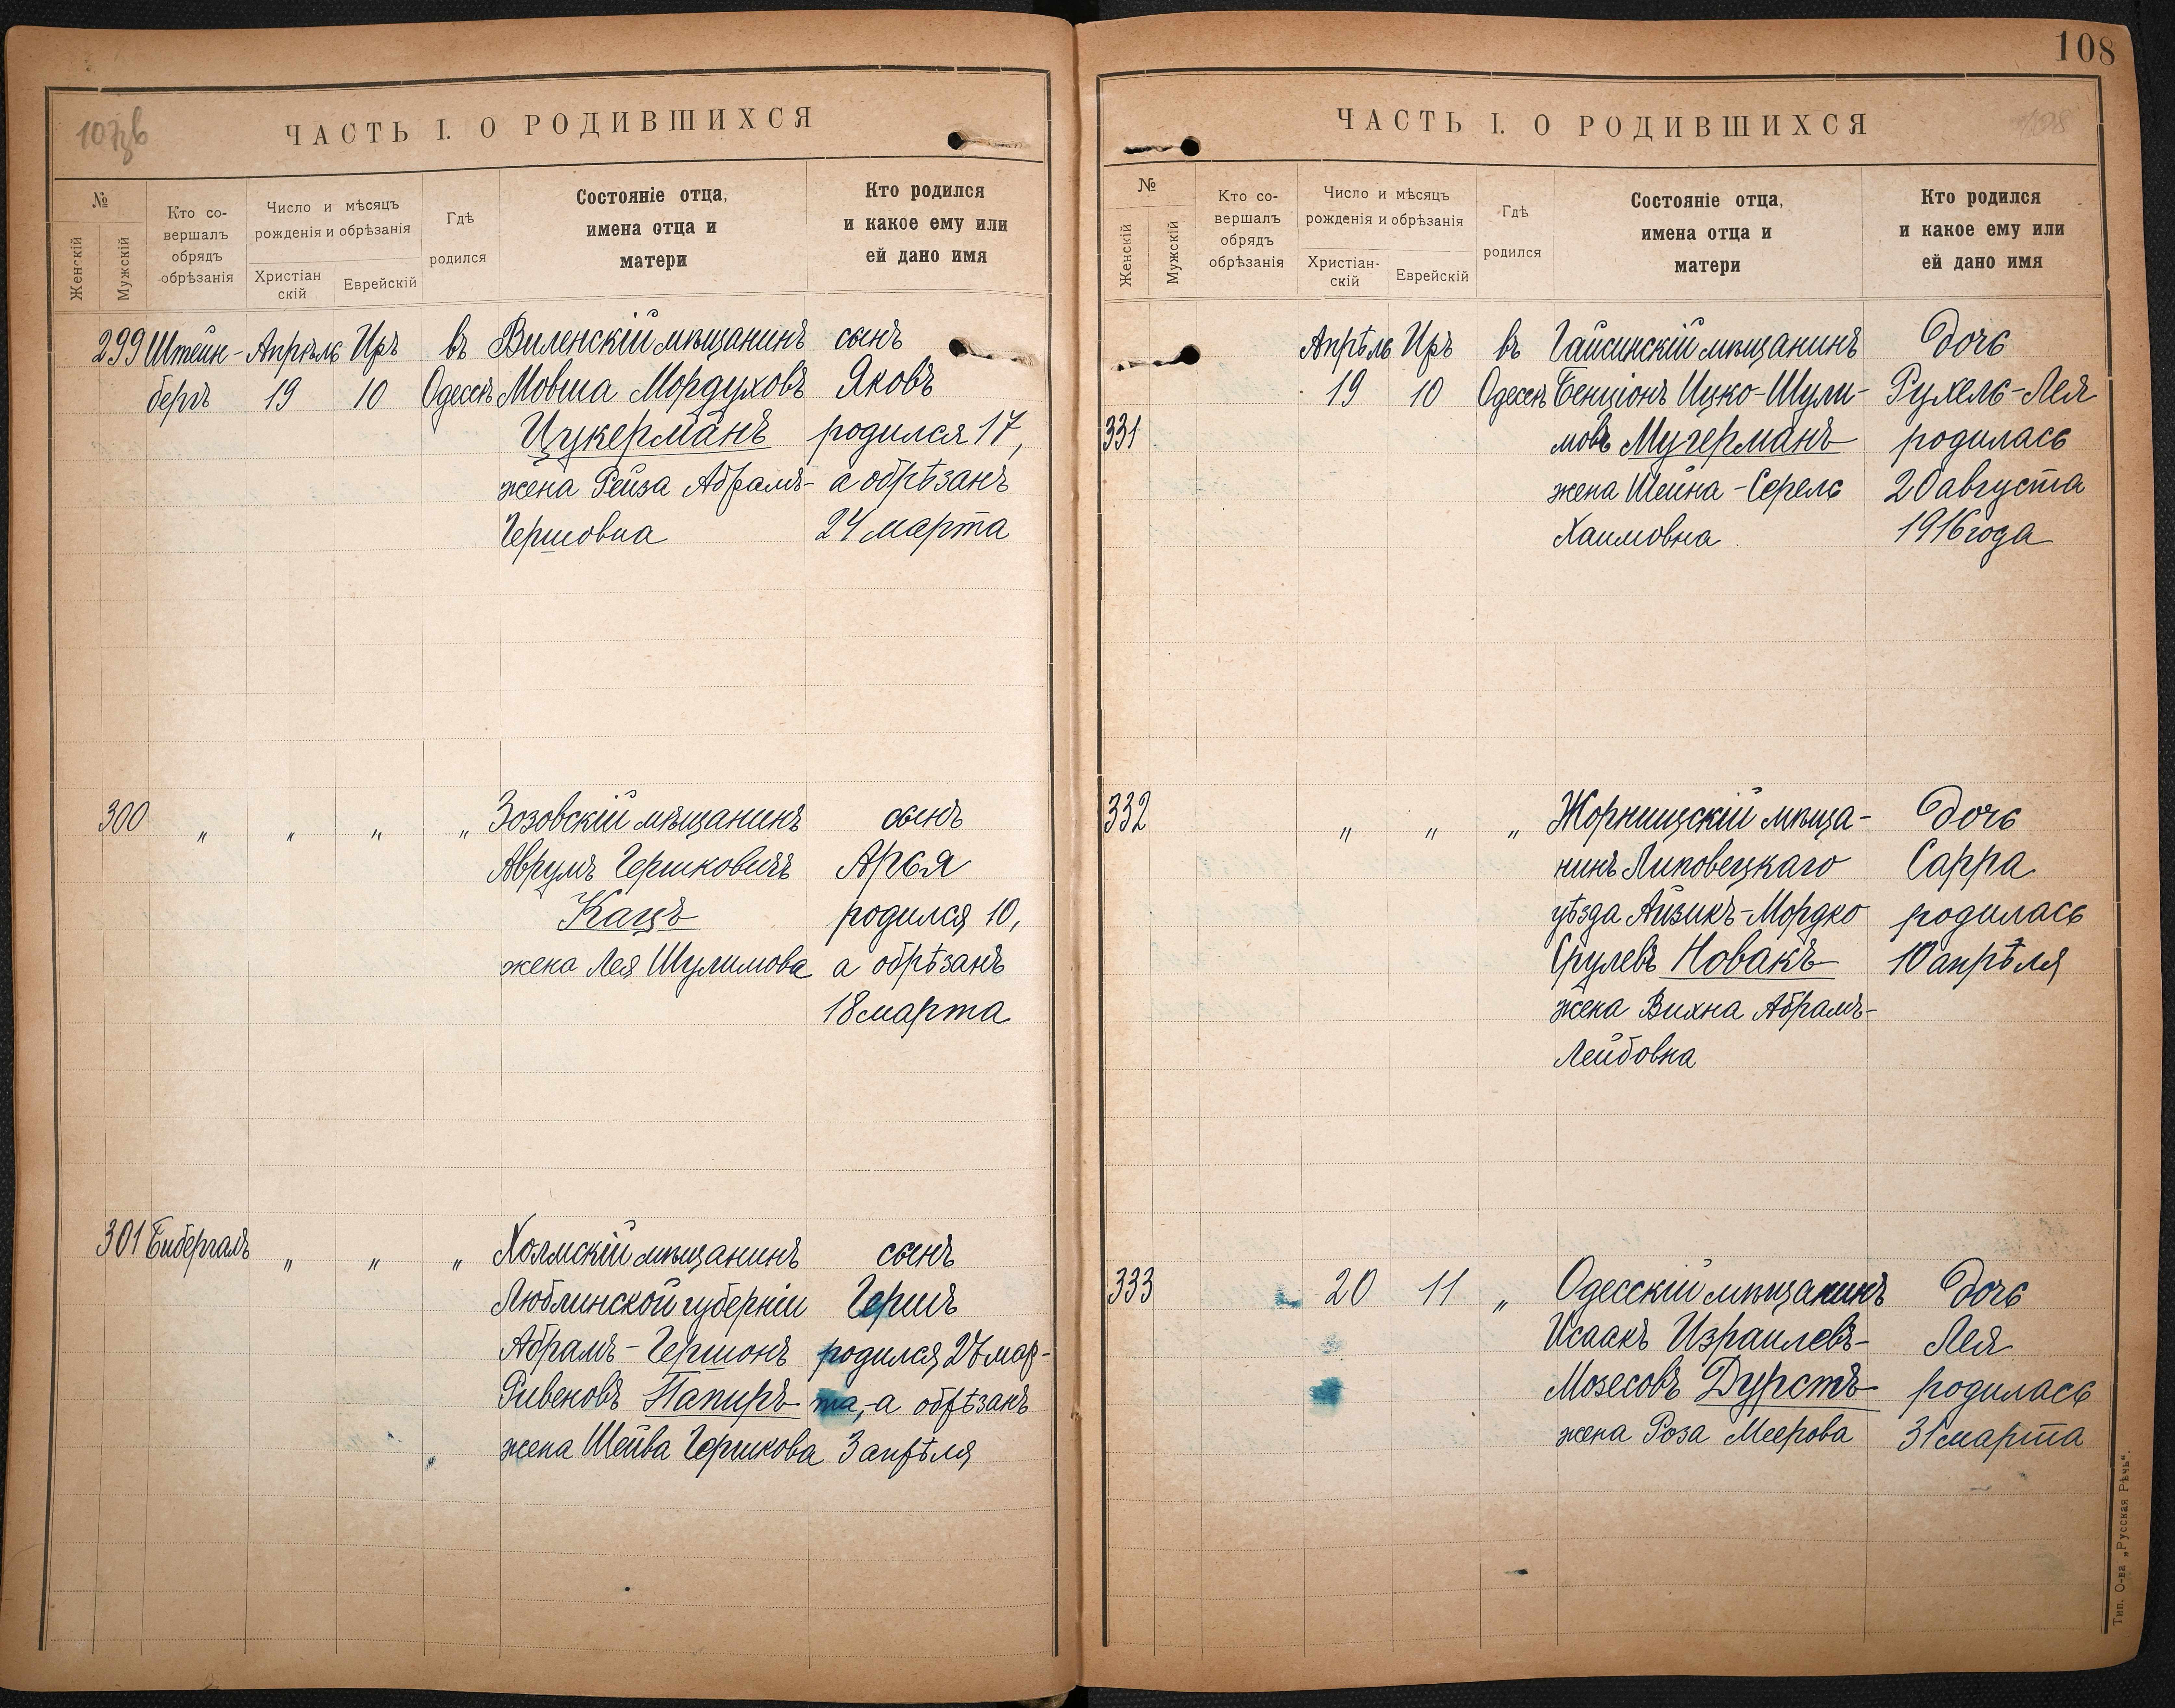 108
107зв
ЧАСТЬ I. О РОДИВШИХСЯ
№
Женскій
Мужскій
Кто со-
вершалъ
обрядъ
обрѣзанія
Число и мѣсяцъ
рожденія и обрѣзанія
Христіан
скій
Еврейскій
Гдѣ
родился
Состояніе отца,
имена отца и
матери
Кто родился
и какое ему или
ей дано имя
299 Штейн- Апрѣль Иръ въ Виленскій мѣщанинъ сынъ
бергъ 19 10 Одессѣ Мовша Мордуховъ Яковъ
Цукерманъ родился 17,
жена Рейза Абрамъ- а обрѣзанъ
Гершовна 24 марта
300 „ „ „ „ Зозовскій мѣщанинъ сынъ
Аврумъ Гершковичъ Арья
Кацъ родился 10,
жена Лея Шулимова а обрѣзанъ
18 марта
301 Бибергалъ „ „ „ Холмскій мѣщанинъ сынъ
Люблинской губерніи Гершъ
Абрамъ-Гершонъ родился 27 мар-
Ривеновъ Папиръ та, а обрѣзанъ
жена Шейва Гершкова 3 апрѣля
ЧАСТЬ I. О РОДИВШИХСЯ
108
№
Женскій
Мужскій
Кто со-
вершалъ
обрядъ
обрѣзанія
Число и мѣсяцъ
рожденія и обрѣзанія
Христіан-
скій
Еврейскій
Гдѣ
родился
Состояніе отца,
имена отца и
матери
Кто родился
и какое ему или
ей дано имя
Апрѣль Иръ въ Гайсинскій мѣщанинъ дочь
19 10 Одессѣ Бенціонъ Ицко-Шули- Рухель-Лея
331 мовъ Мучерманъ родилась
жена Шейна-Серель 20 августа
Хаимовна 1916 года
332 „ „ „ Жорнищскій мѣща- дочь
нинъ Липовецкаго Сарра
уѣзда Айзикъ-Мордко родилась
Срулевъ Новакъ 10 апрѣля
жена Вихна Абрамъ-
Лейбовна
333 20 11 „ Одесскій мѣщанинъ дочь
Исаакъ Израилевъ- Лея
Мозесовъ Дурстъ родилась
жена Роза Меерова 31 марта
Тип. О-ва „Русская Рѣчь“.